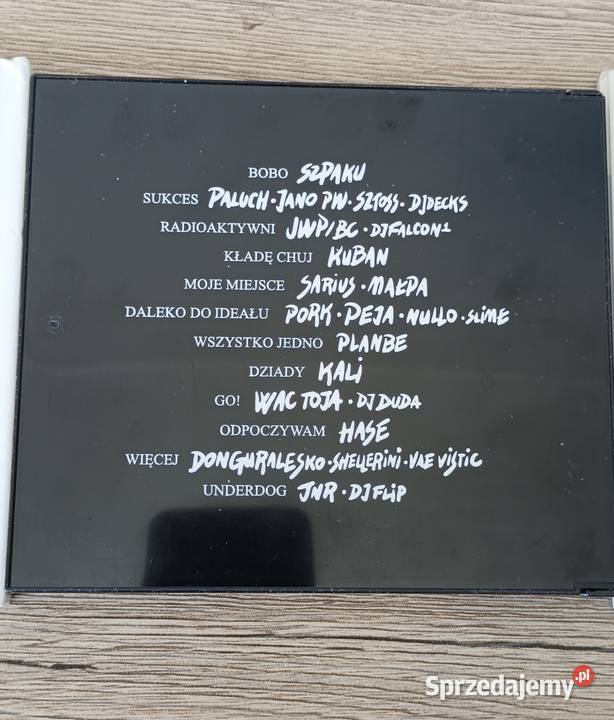 BOBO SZPAKU
SUKCES PALUCH · JANO PW · SZTOSS · DJ DECKS
RADIOAKTYWNI JWP/BC · DJ FALCON1
KŁADĘ CHUJ KUBAN
MOJE MIEJSCE SARIUS · MAŁPA
DALEKO DO IDEAŁU PORK · PEJA · NULLO · SLIME
WSZYSTKO JEDNO PLANBE
DZIADY KALI
GO! WAC TOJA · DJ DUDA
ODPOCZYWAM HASE
WIĘCEJ DONGURALESKO · SHELLERINI · VAE VISTIC
UNDERDOG JNR · DJ FLIP
Sprzedajemy.pl